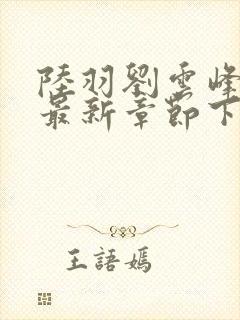 陸羽劉雲峰
最新章節下
王語嫣